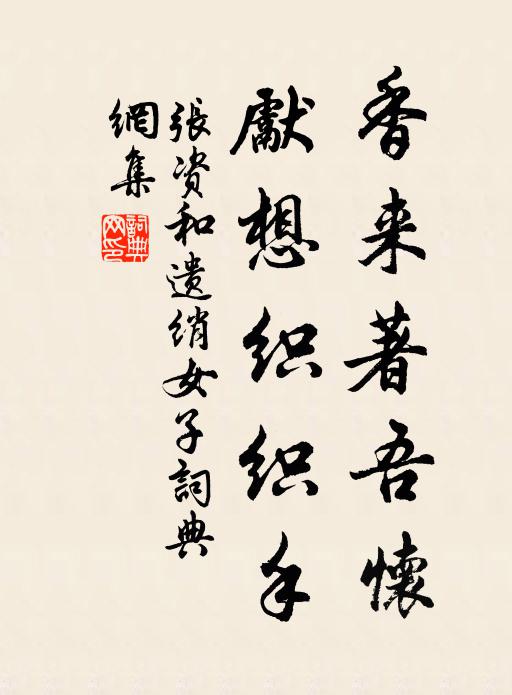 香来著吾懷
獻想织织手
張资和遗绡女子詞典
網集
詞典
网印